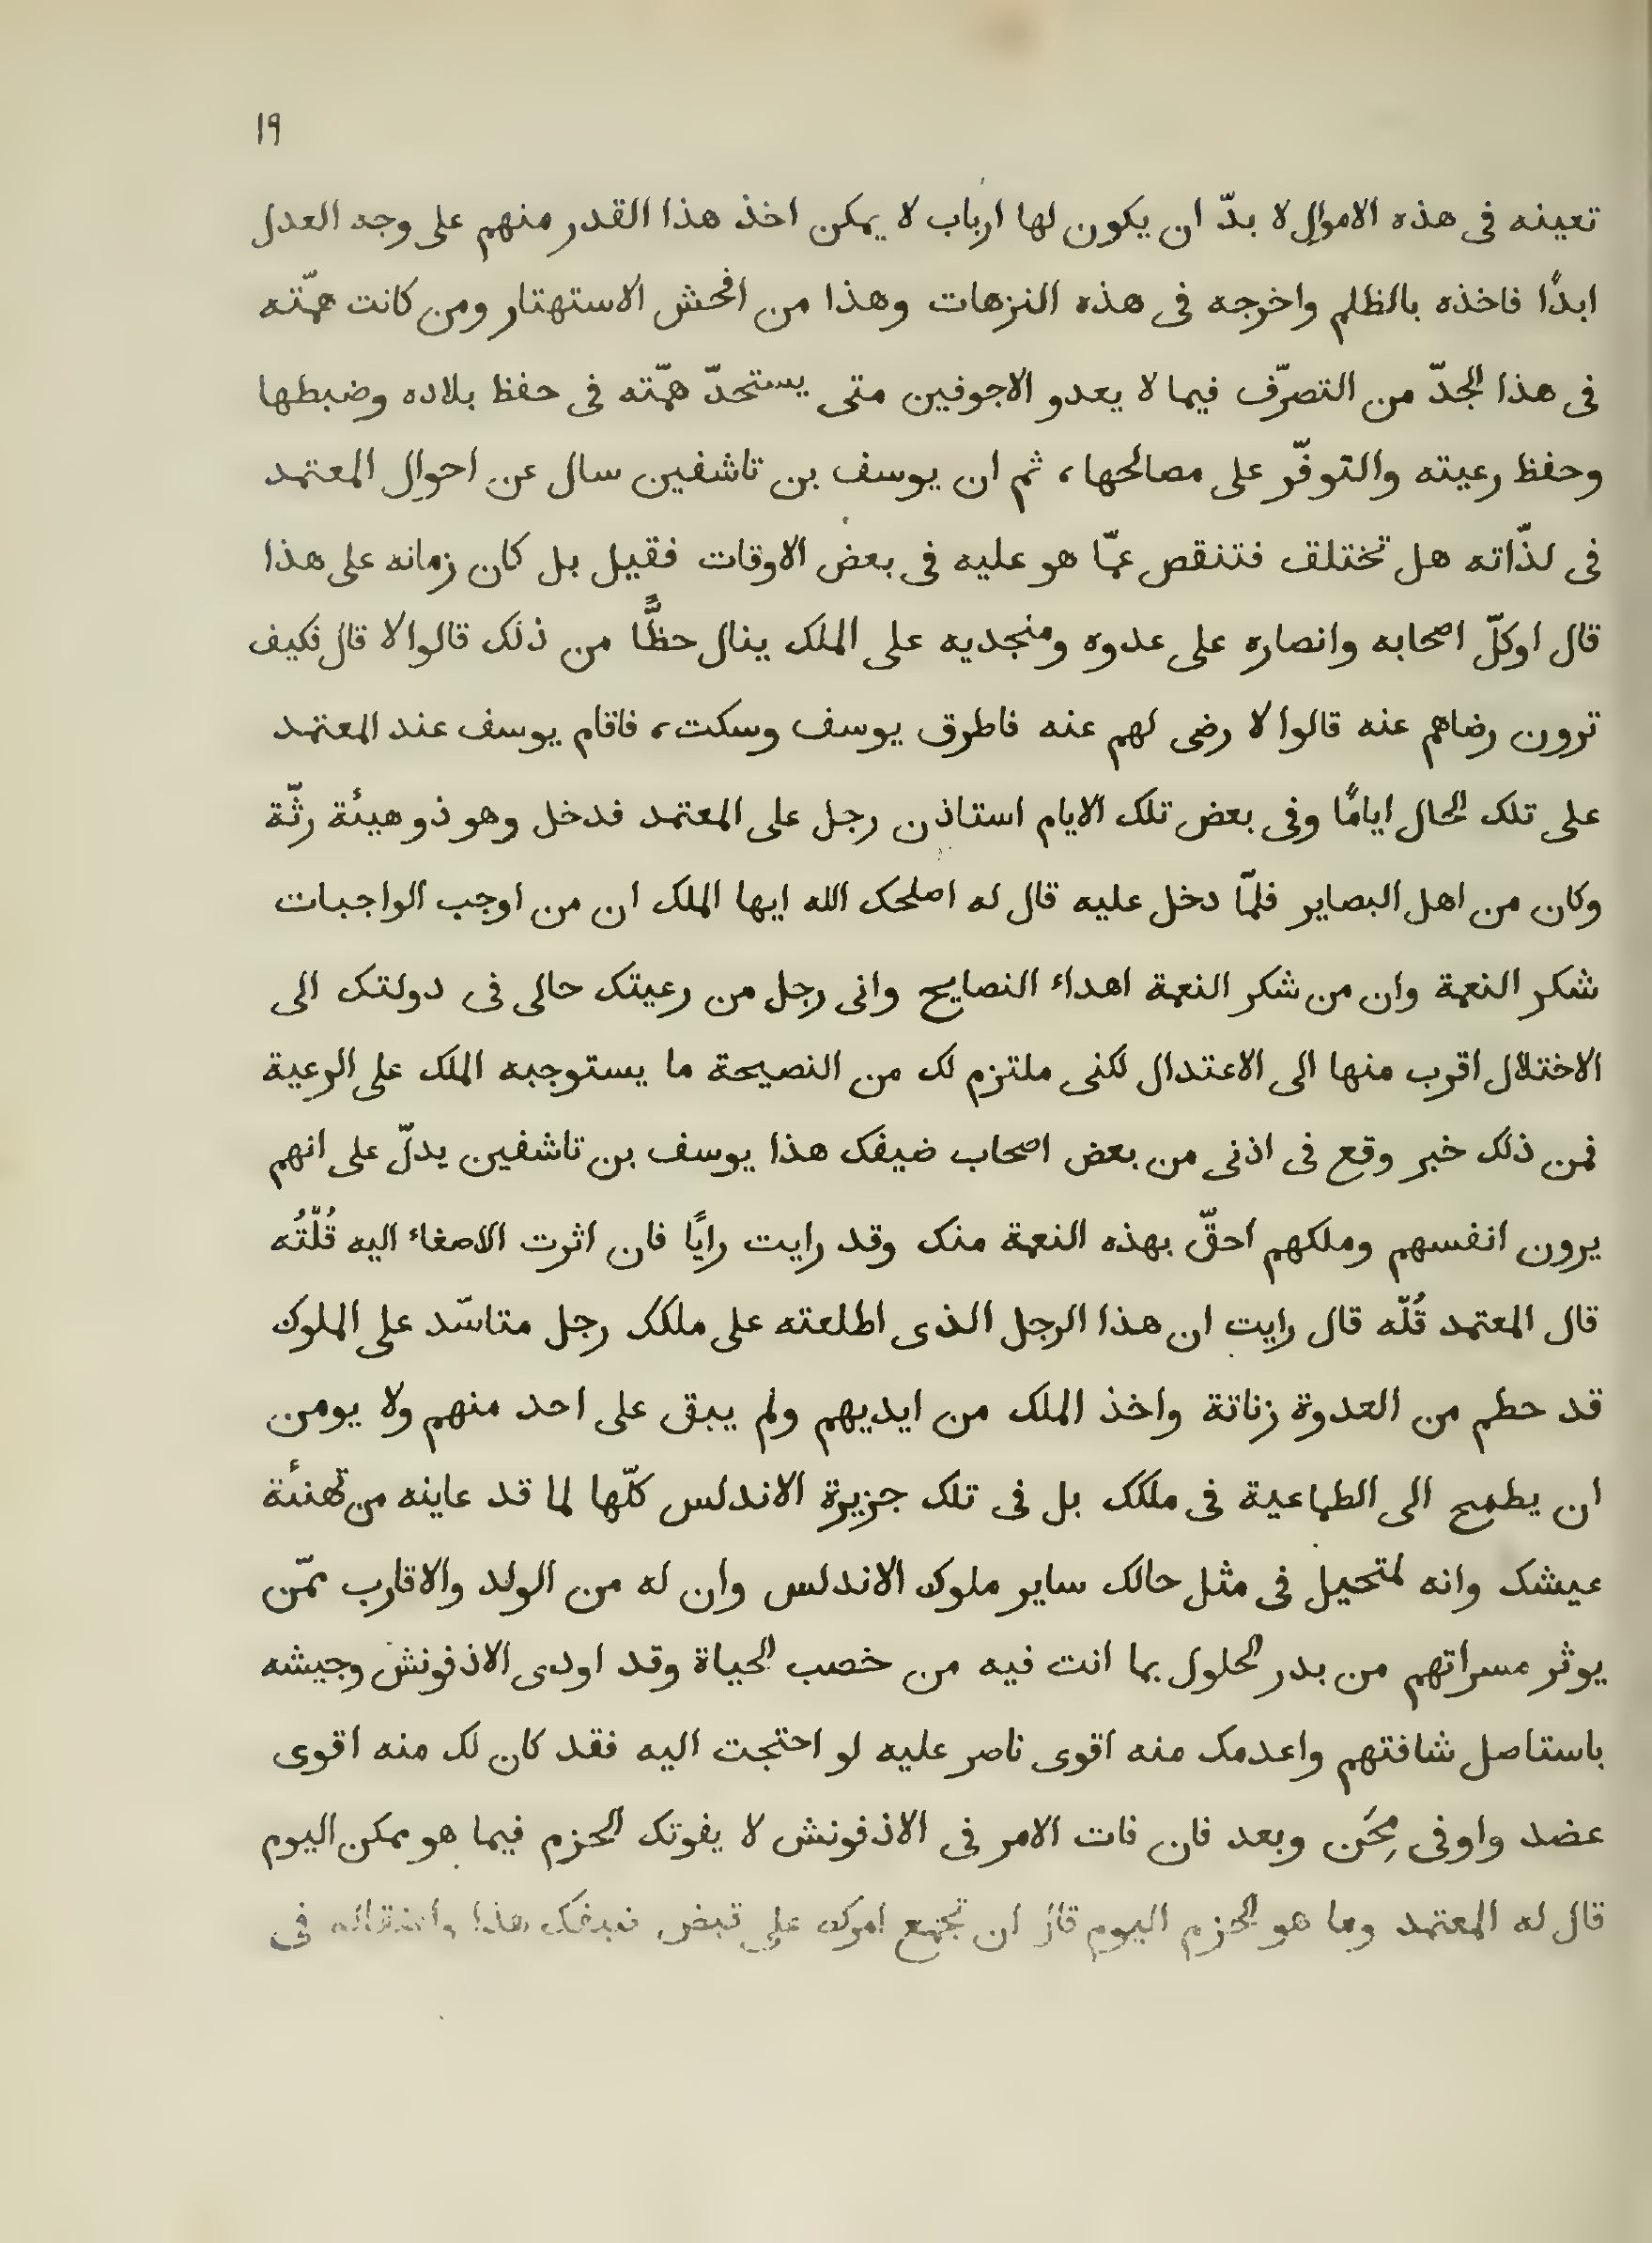 ١٩
تعينه فى هذه الاموال لا بدّ ان يكون لها ارباب لا يمكن اخذ هذا القدر منهم على وجه العدل
ابدًا فاخذه بالظلم واخرجه فى هذه النزهات وهذا من افحش الاستهتار ومن كانت همّته
فى هذا الجدّ من التصرّف فيما لا يعدو الاجوفين متى يستحدّ همّته فى حفظ بلاده وضبطها
وحفظ رعيته والتوفّر على مصالحها، ثم ان يوسف بن تاشفين سال عن احوال المعتمد
فى لذّاته هل تختلف فتنقص عمّا هو عليه فى بعض الاوقات فقيل بل كان زمانه على هذا
قال اوكلّ اصحابه وانصاره على عدوه ومنجديه على الملك ينال حظًّا من ذلك قالوا لا قال فكيف
ترون رضاهم عنه قالوا لا رضى لهم عنه فاطرق يوسف وسكت، فاقام يوسف عند المعتمد
على تلك الحال ايامًا وفى بعض تلك الايام استاذن رجل على المعتمد فدخل وهو ذو هيئة رثّة
وكان من اهل البصاير فلمّا دخل عليه قال له اصلحك الله ايها الملك ان من اوجب الواجبات
شكر النعمة وان من شكر النعمة اهداء النصايح وانى رجل من رعيتك حالى فى دولتك الى
الاختلال اقرب منها الى الاعتدال لكنى ملتزم لك من النصيحة ما يستوجبه الملك على الرعية
فمن ذلك خبر وقع فى اذنى من بعض اصحاب ضيفك هذا يوسف بن تاشفين يدلّ على انهم
يرون انفسهم وملكهم احقّ بهذه النعمة منك وقد رايت رايًا فان اثرت الاصغاء اليه قُلّتُه
قال المعتمد قُلّه قال رايت ان هذا الرجل الذى اطلعته على ملكك رجل متاسّد على الملوك
قد حطم من العدوة زناتة واخذ الملك من ايديهم ولم يبق على احد منهم ولا يومن
ان يطمح الى الطماعية فى ملكك بل فى تلك جزيرة الاندلس كلّها لما قد عاينه من تهنئة
عيشك وانه لمتحيل فى مثل حالك ساير ملوك الاندلس وان له من الولد والاقارب ممّن
يوثر مسراتهم من بدر الحلول بما انت فيه من خصب الحياة وقد اودى الاذفونش وجيشه
باستاصل شافتهم واعدمك منه اقوى ناصر عليه لو احتجت اليه فقد كان لك منه اقوى
عضد واوفى مِجَن وبعد فان فات الامر فى الاذفونش لا يفوتك الحزم فيما هو ممكن اليوم
قال له المعتمد وما هو الحزم اليوم قال ان تجمع امرك على قبض ضيفك هذا واعتقاله فى